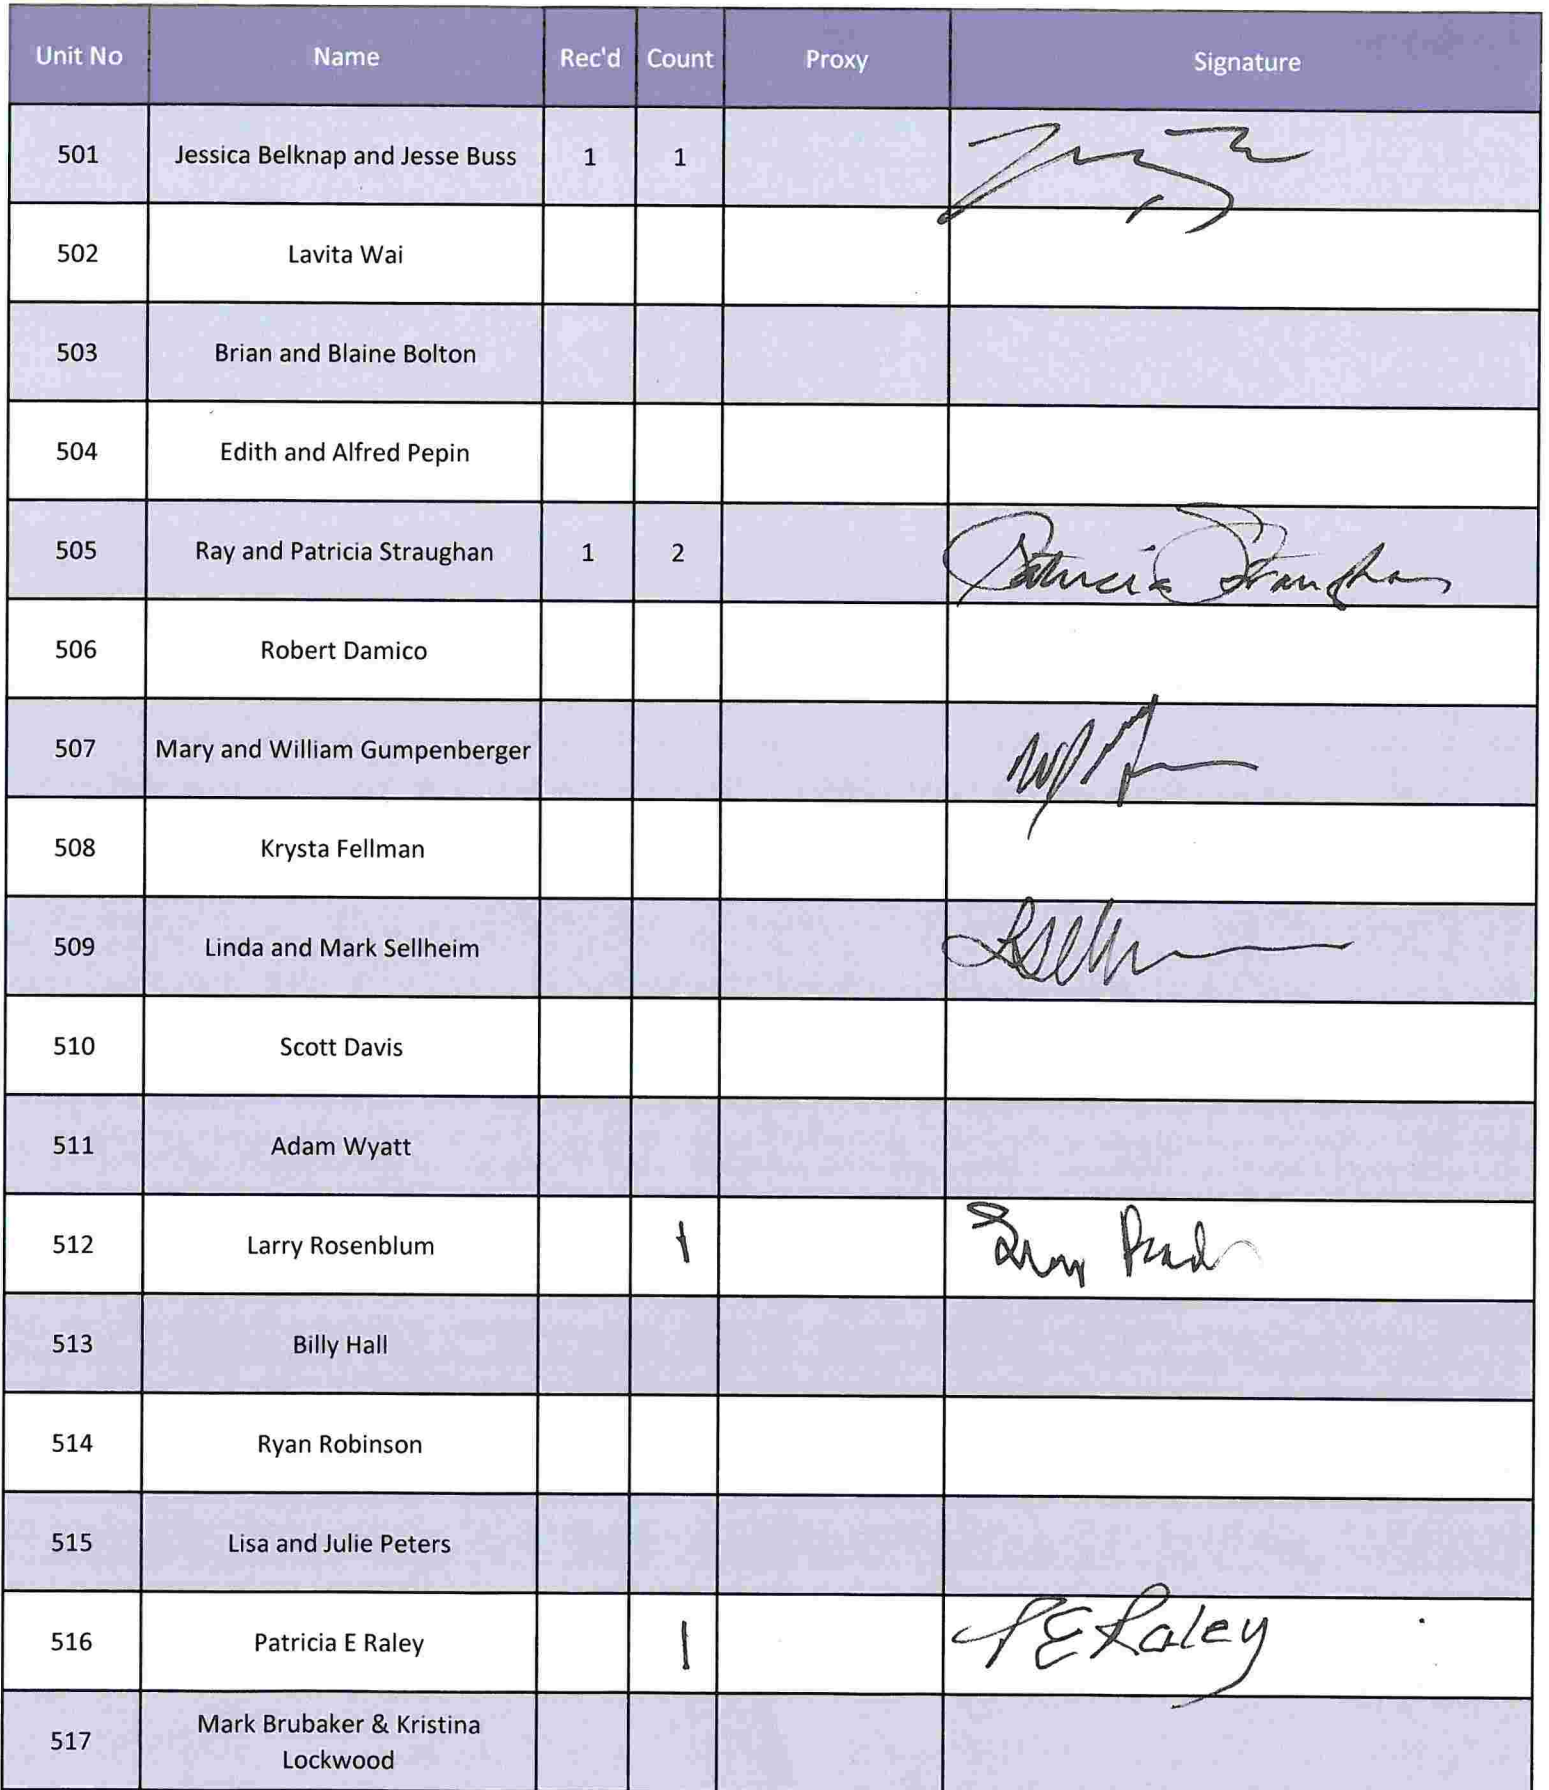 Unit No Name Rec'd Count Proxy Signature
501 Jessica Belknap and Jesse Buss 1 1
502 Lavita Wai
503 Brian and Blaine Bolton
504 Edith and Alfred Pepin
505 Ray and Patricia Straughan 1 2 Patricia Straughan
506 Robert Damico
507 Mary and William Gumpenberger
508 Krysta Fellman
509 Linda and Mark Sellheim
510 Scott Davis
511 Adam Wyatt
512 Larry Rosenblum 1
513 Billy Hall
514 Ryan Robinson
515 Lisa and Julie Peters
516 Patricia E Raley 1 P E Raley
517 Mark Brubaker & Kristina
Lockwood